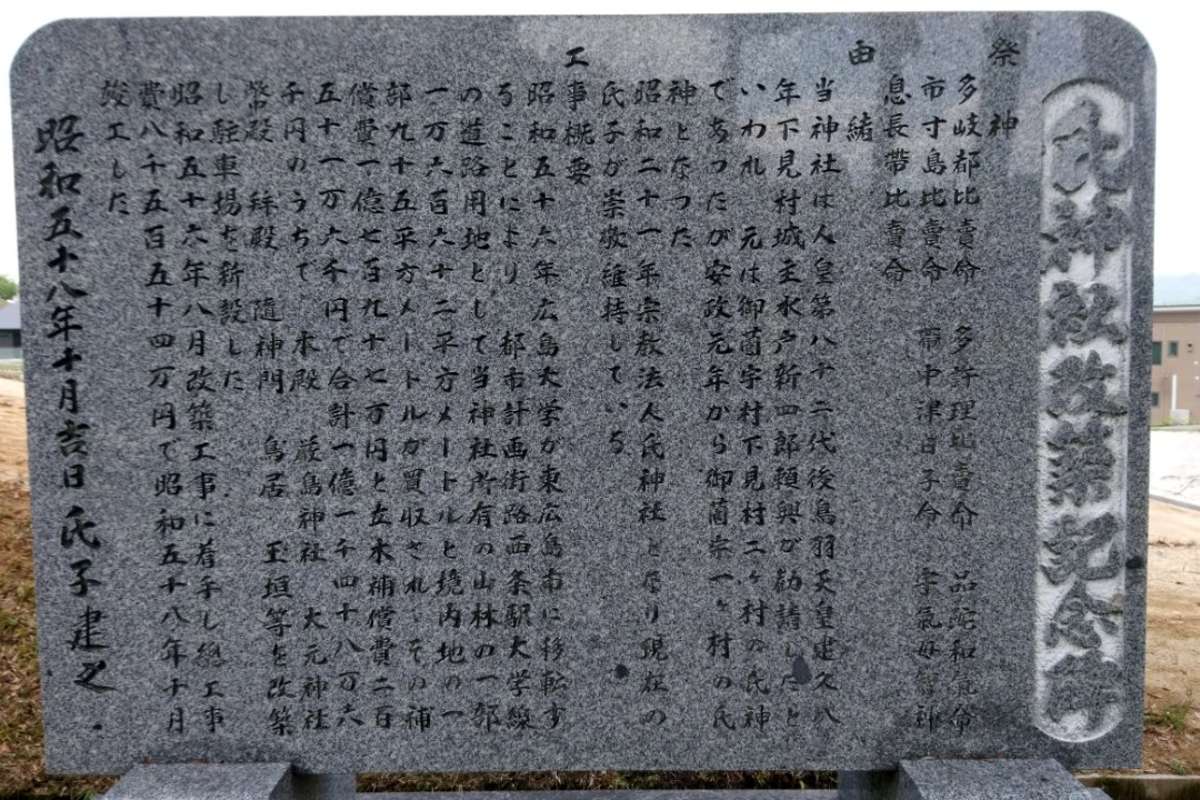 氏神社改築記念碑
祭神
多岐都比賣命 多紀理比賣命 品陀和氣命
市寸島比賣命 帯中津日子命 宇氣母智神
息長帶比賣命
由緒
当神社は人皇第八十二代後鳥羽天皇建久八
年下見村城主水戸新四郎頼興が勧請したと
いわれ 元は御薗宇村下見村二ヶ村の氏神
であつたが安政元年から御薗宇一ヶ村の氏
神となつた
昭和二十一年宗教法人氏神社となり現在の
氏子が崇敬維持している
工事概要
昭和五十六年広島大学が東広島市に移転す
ることにより 都市計画街路西条駅大学線
の道路用地として当神社所有の山林の一部
一万六百六十二平方メートルと境内地の一
部九十五平方メートルが買収され、その補
償費一億七百九十七万円と立木補償費二百
五十一万六千円で合計一億一千四十八万六
千円のうちで 本殿 厳島神社 大元神社
幣殿 拝殿 隨神門 鳥居 玉垣等を改築
し駐車場を新設した
昭和五十六年八月改築工事に着手し総工事
費八千五百五十四万円で昭和五十八年十月
竣工した
昭和五十八年十月吉日氏子建之